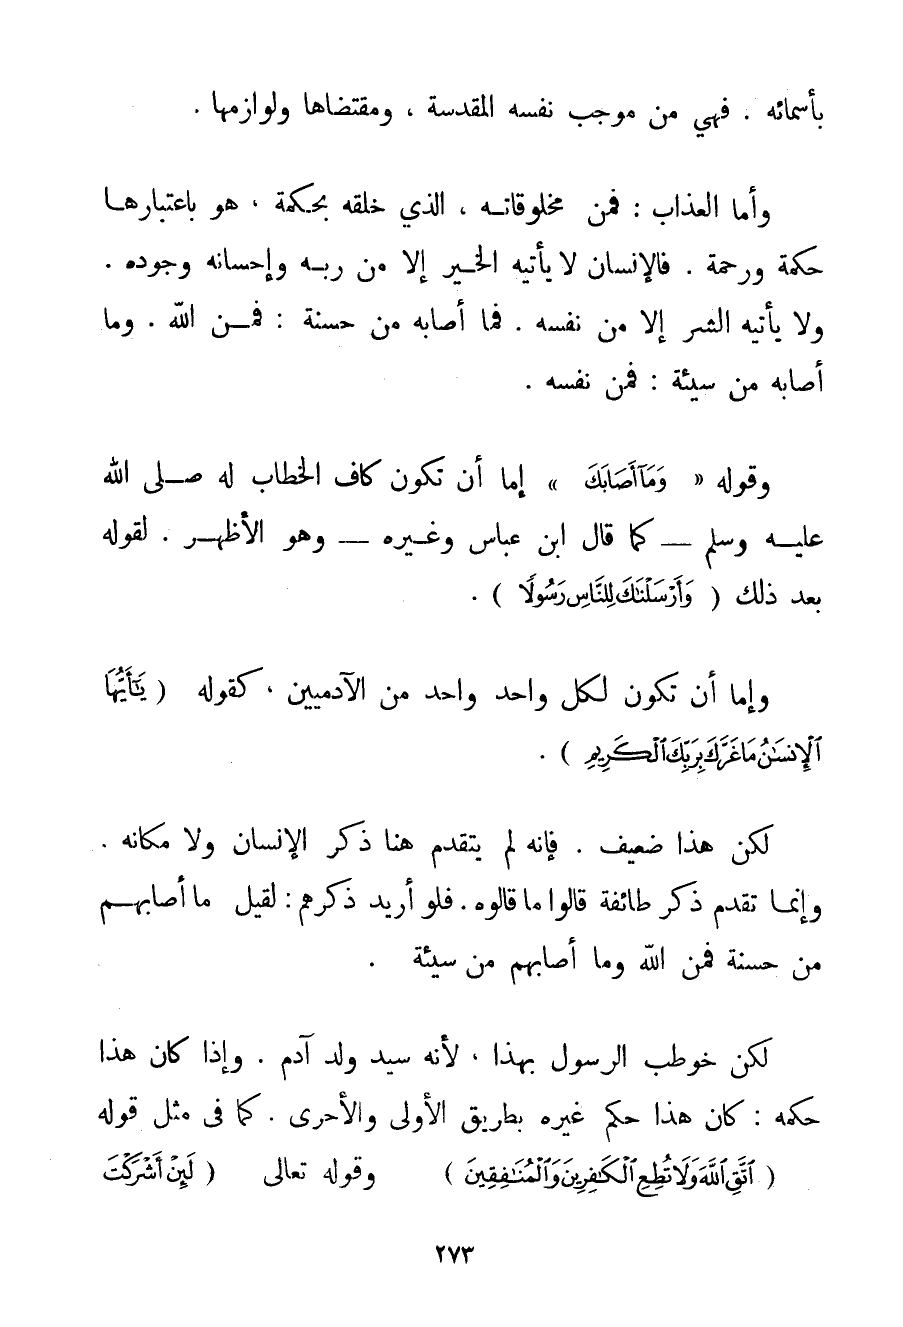 بأسمائه . فهي من موجب نفسه المقدسة ، ومقتضاها ولوازمها .
وأما العذاب : فمن مخلوقاته ، الذي خلقه بحكمة ، هو باعتبارها
حكمة ورحمة . فالإنسان لا يأتيه الخير إلا من ربه وإحسانه وجوده .
ولا يأتيه الشر إلا من نفسه . فما أصابه من حسنة : فمن الله . وما
أصابه من سيئة : فمن نفسه .
وقوله « وَمَآ أَصَابَكَ » إما أن تكون كاف الخطاب له صلى الله
عليه وسلم — كما قال ابن عباس وغيره — وهو الأظهر . لقوله
بعد ذلك ( وَأَرْسَلْنَٰكَ لِلنَّاسِ رَسُولًا ) .
وإما أن تكون لكل واحد واحد من الآدميين ، كقوله ( يَٰٓأَيُّهَا
ٱلْإِنسَٰنُ مَا غَرَّكَ بِرَبِّكَ ٱلْكَرِيمِ ) .
لكن هذا ضعيف . فإنه لم يتقدم هنا ذكر الإنسان ولا مكانه .
وإنما تقدم ذكر طائفة قالوا ما قالوه . فلو أريد ذكرهم : لقيل ما أصابهم
من حسنة فمن الله وما أصابهم من سيئة .
لكن خوطب الرسول بهذا ، لأنه سيد ولد آدم . وإذا كان هذا
حكمه : كان هذا حكم غيره بطريق الأولى والأحرى . كما فى مثل قوله
( ٱتَّقِ ٱللَّهَ وَلَا تُطِعِ ٱلْكَٰفِرِينَ وَٱلْمُنَٰفِقِينَ ) وقوله تعالى ( لَئِنْ أَشْرَكْتَ
٢٧٣